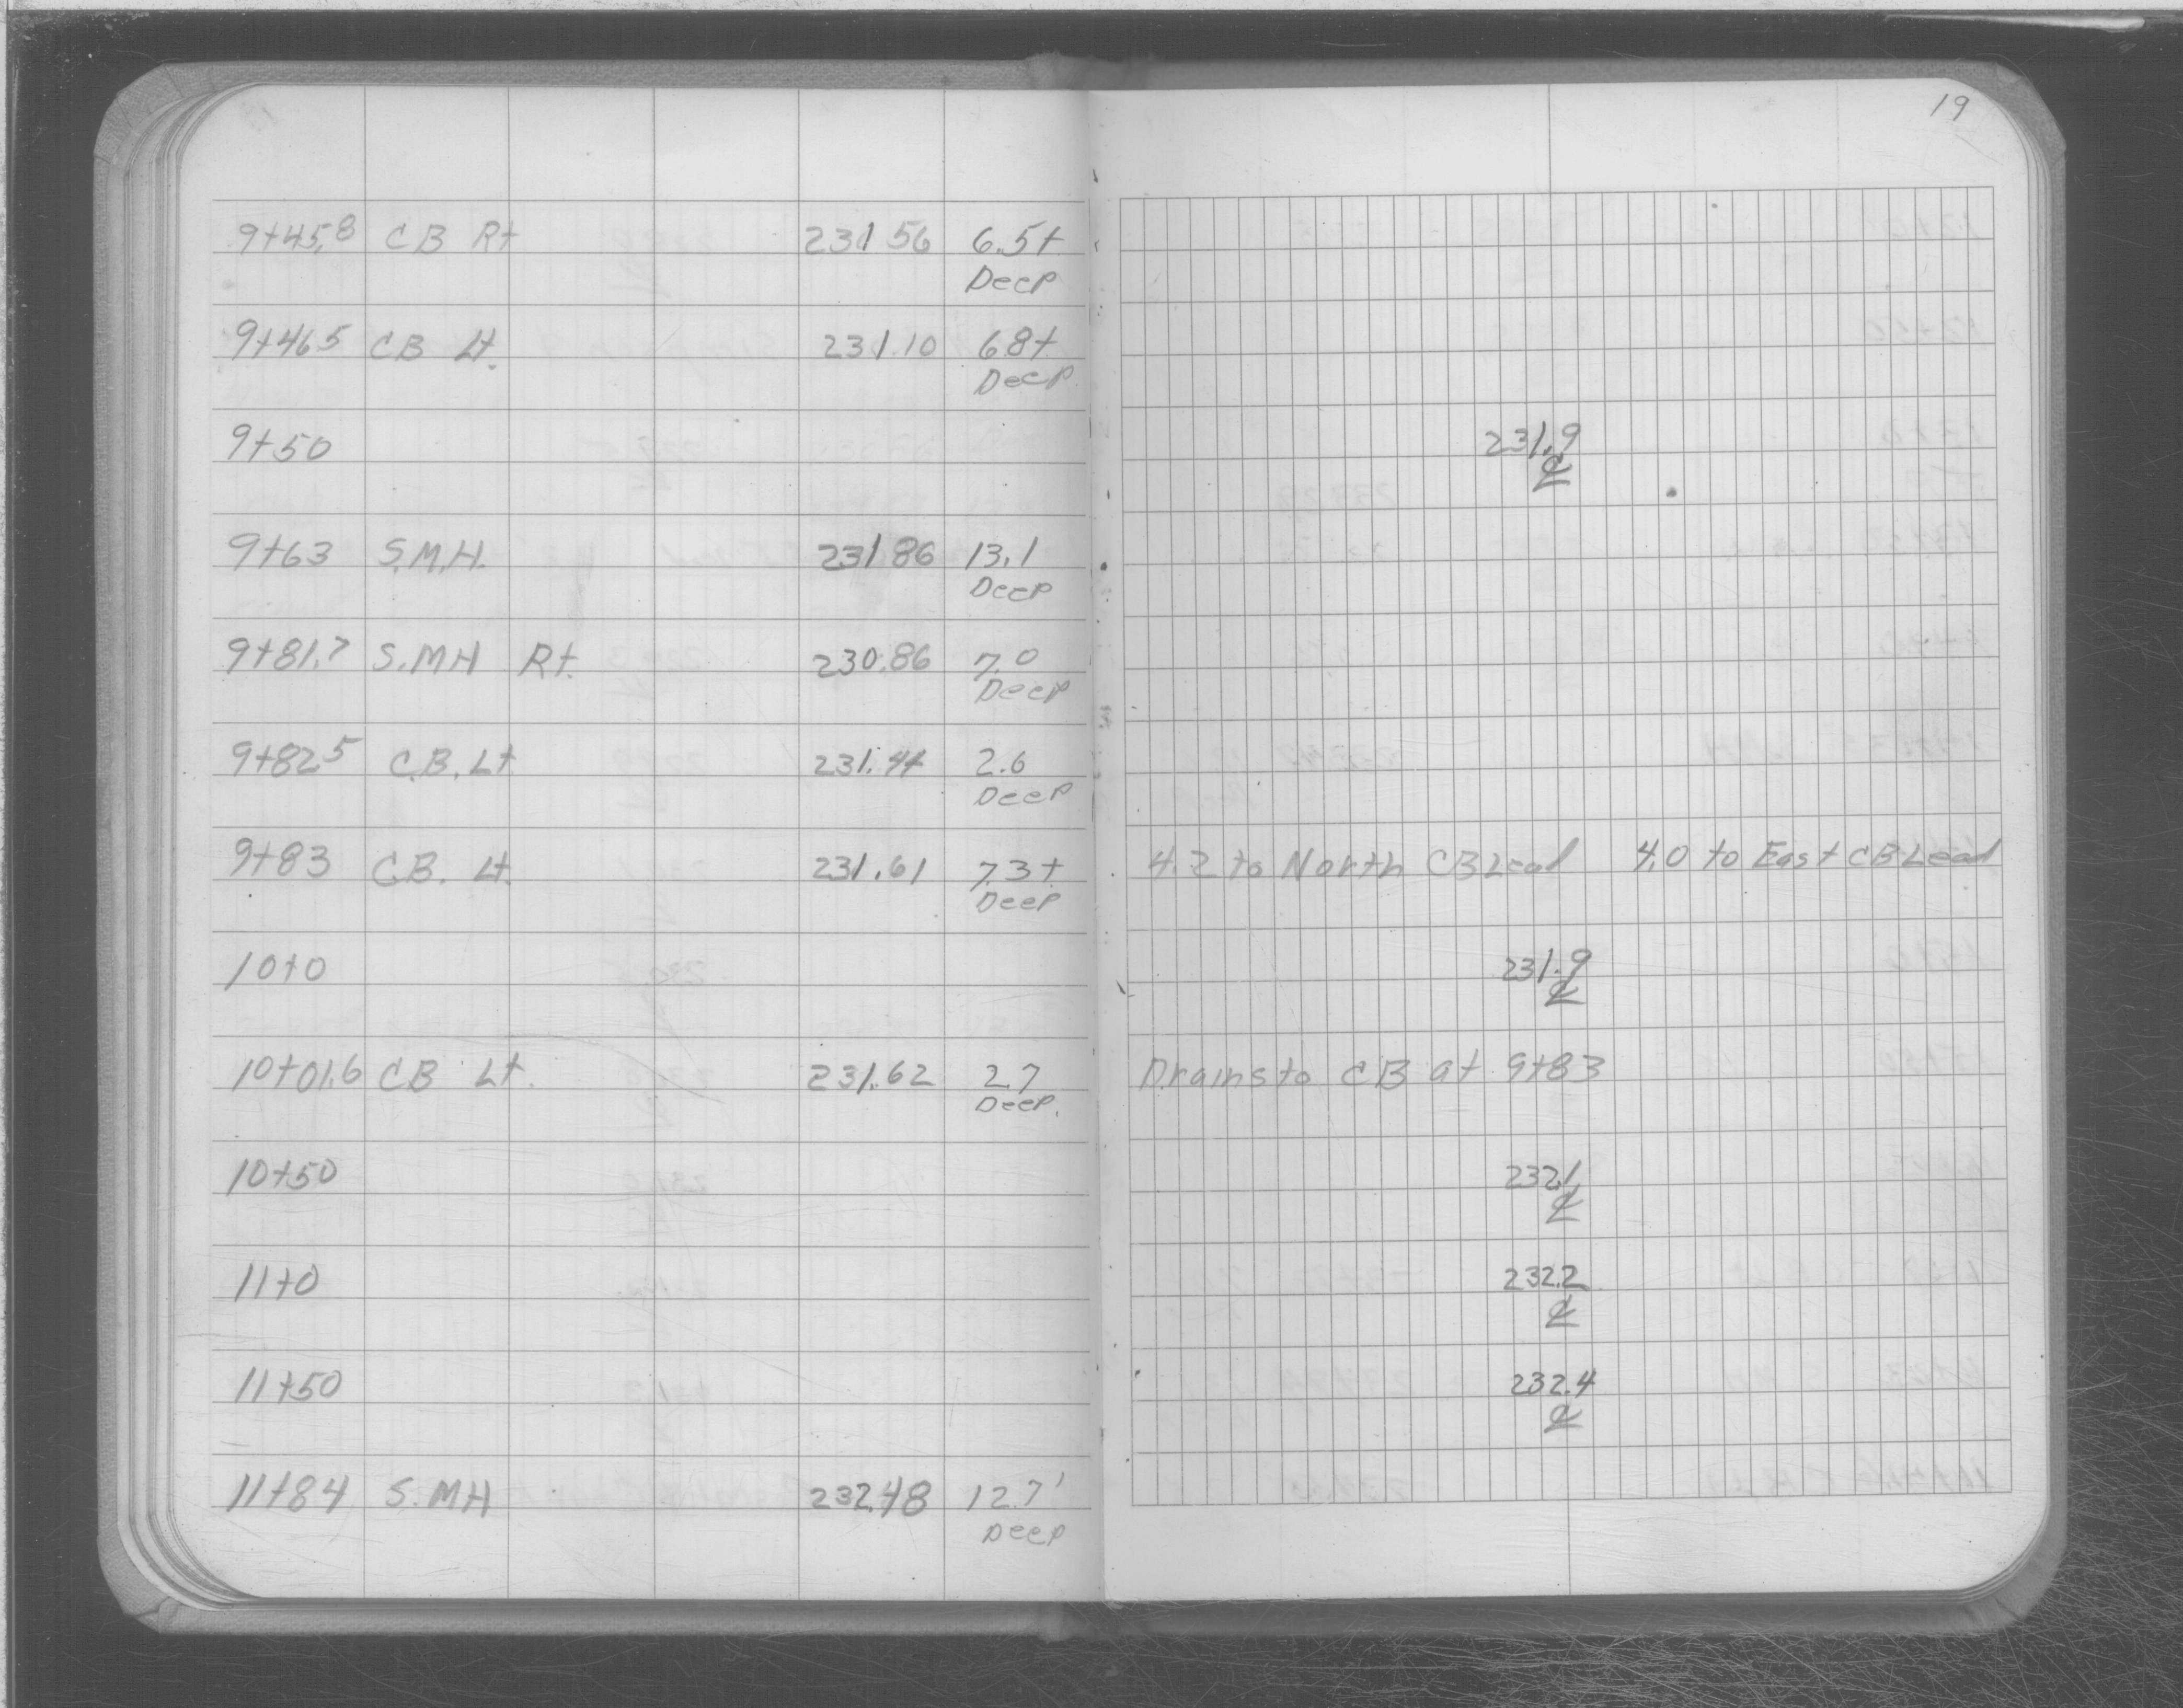 19
9+45.8 CB Rt 231 56 6.5+
Deep
9+46 5 CB Lt. 231.10 6 8+
Deep
9+50 231.9
℄
9+63 S.M.H. 231 86 13.1
Deep
9+81.7 S.MH Rt. 230.86 7.0
Deep
9+82 5 C.B. Lt 231.44 2.6
Deep
9+83 C.B. Lt. 231.61 7.3+ 4.2 to North CB Lead 4.0 to East CB Lead
Deep
10+0 231.9
℄
10+01.6 CB Lt. 231.62 2 7 Drains to CB at 9+83
Deep.
10+50 232.1
℄
11+0 232.2
℄
11+50 232.4
℄
11+84 S.MH 232.48 12 7'
Deep